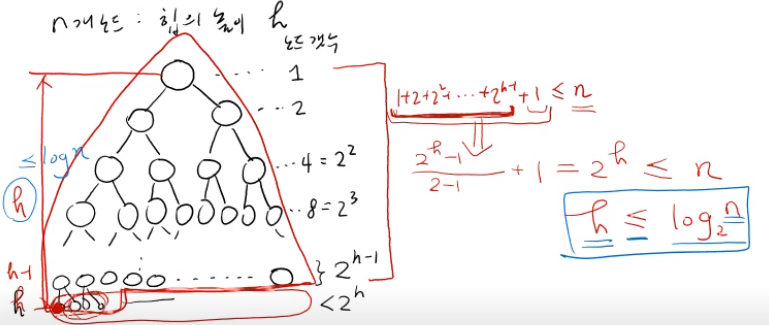 n개노드 : 힙의 높이 h
노드갯수
1
2
4 = 2²
8 = 2³
≤ logn
h
h-1
} 2^{h-1}
h
< 2^h
1+2+2²+ ... +2^{h-1} + 1 ≤ n
\frac{2^h-1}{2-1} + 1 = 2^h ≤ n
h ≤ log₂n